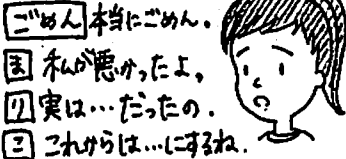 ごめん 本当にごめん.
ま 私が悪かったよ,
り 実は…だったの.
こ これからは…にするね.